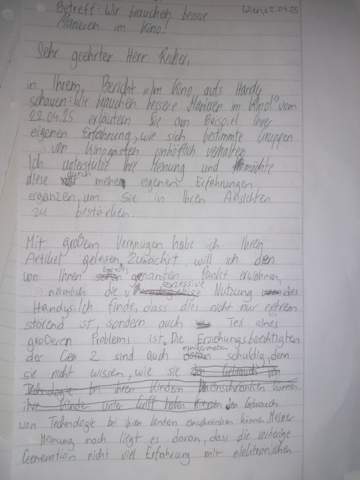 Betreff: Wir brauchen bessere
Manieren im Kino!
Sehr geehrter Herr
in Ihrem Bericht „Im Kino aufs Handy
schauen: Wir brauchen bessere Manieren im Kino!" vom
02.04.25 erläutern Sie am Beispiel Ihrer
eigenen Erfahrung, wie sich bestimmte Gruppen
von Kinogästen unhöflich verhalten.
Ich unterstütze Ihre Meinung und möchte
diese durch meine eigenen Erfahrungen
ergänzen, um Sie in Ihren Ansichten
zu bestärken.
Mit großem Vergnügen habe ich Ihren
Artikel gelesen. Zunächst will ich den
von Ihnen bereits genannten Punkt erwähnen,
nämlich die exzessive Nutzung des
Handys. Ich finde, dass dies nicht nur extrem
störend ist, sondern auch Teil eines
größeren Problems ist. Die Erziehungsberechtigten
der Gen Z sind auch schuldig, denn
sie nicht wissen, wie sie
den Gebrauch
von Technologie bei ihren Kindern einschränken können. Meiner
Meinung nach liegt es daran, dass die vorherige
Generation nicht viel Erfahrung mit elektronischen